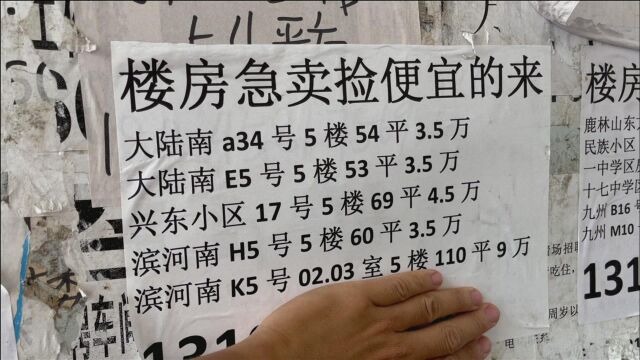 楼房急卖捡便宜的来
大陆南 a34 号 5 楼 54 平 3.5 万
大陆南 E5 号 5 楼 53 平 3.5 万
兴东小区 17 号 5 楼 69 平 4.5 万
滨河南 H5 号 5 楼 60 平 3.5 万
滨河南 K5 号 02.03 室 5 楼 110 平 9 万
131
楼房
鹿林山东
民族小区
一中学区
十七中学区
九州 B16
九州 M10
131